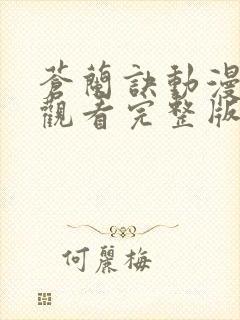 蒼蘭訣動漫
觀看完整版
何麗梅